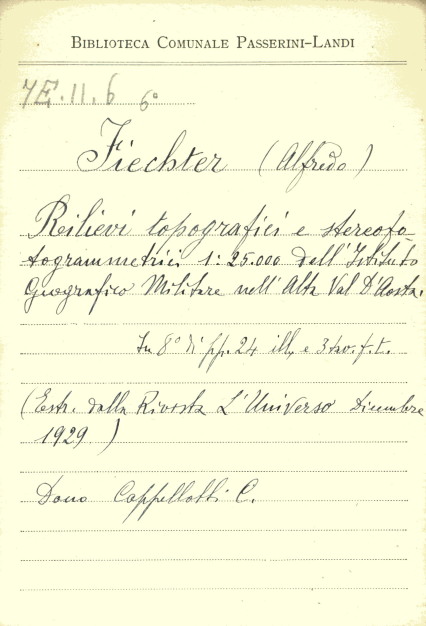 BIBLIOTECA COMUNALE PASSERINI-LANDI
7E.11.6 6°
Fiechter (Alfredo)
Rilievi topografici e stereofo-
togrammetrici 1:25.000 dell'Istituto
Geografico Militare nell'Alta Val D'Aosta.
In 8° di pp. 24 ill. e 3 tav. f. t.
(Estr. dalla Rivista L'Universo Dicembre
1929)
Dono Cappellotti C.